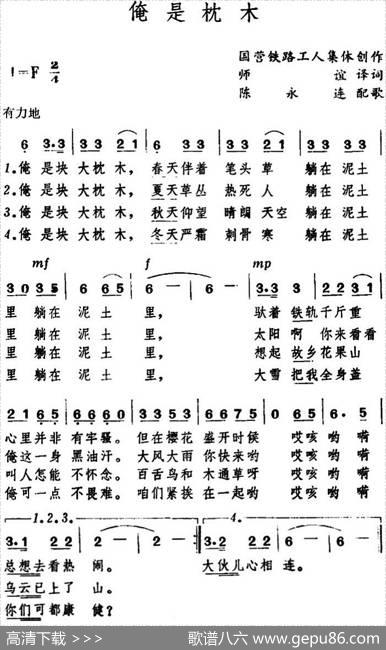 俺是枕木
国营铁路工人集体创作
1=F 2/4
师谊译词
陈永连配歌
有力地
6 3·3 3 3 2 1 6 3 3 3 3 2 1
1.俺 是块 大枕 木， 春天伴着 笔头草 躺在 泥土
2.俺 是块 大枕 木， 夏天草丛 热死人 躺在 泥土
3.俺 是块 大枕 木， 秋天仰望 晴阔天空 躺在 泥土
4.俺 是块 大枕 木， 冬天严霜 刺骨寒 躺在 泥土
mf f mp
3 0 3 5 6 6 5 6 - 6 - 3·3 3 2 2 3 1
里 躺在 泥土 里， 驮着 铁轨千斤重
里 躺在 泥土 里， 太阳 啊 你来看看
里 躺在 泥土 里， 想起 故乡花果山
里 躺在 泥土 里， 大雪 把我全身盖
2 1 6 5 6 6 6 0 3 3 5 3 6 6 7 5 0 5 6 6·5
心里并非 有牢骚。 但在樱花 盛开时候 哎咳 哟 嗬
俺这一身 黑油汗。 大风大雨 你快来哟 哎咳 哟 嗬
叫人怎能 不怀念。 百舌鸟和 木通草呀 哎咳 哟 嗬
俺可一点 不畏难。 咱们紧挨 在一起哟 哎咳 哟 嗬
1.2.3. 4.
3·1 2 2 2 - 2 - 3·2 2 2 6 - 6 -
总想去看热 闹。 大伙儿心相 连。
乌云已上了 山。
你们可都康 健？
高清下载 >>> 歌谱八六 www.gepu86.com